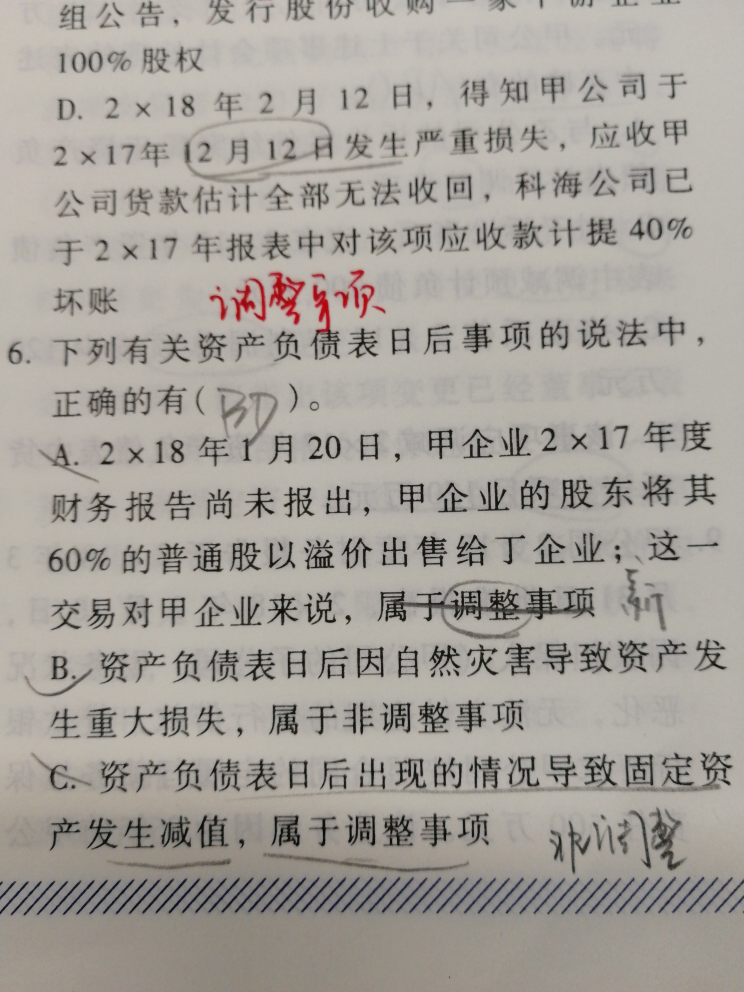 组公告，发行股份收购一家下游企业
100%股权
D. 2×18年2月12日，得知甲公司于
2×17年12月12日发生严重损失，应收甲
公司货款估计全部无法收回，科海公司已
于2×17年报表中对该项应收款计提40%
坏账
调整事项
6. 下列有关资产负债表日后事项的说法中，
正确的有( BD )。
A. 2×18年1月20日，甲企业2×17年度
财务报告尚未报出，甲企业的股东将其
60%的普通股以溢价出售给丁企业；这一
交易对甲企业来说，属于调整事项
B. 资产负债表日后因自然灾害导致资产发
生重大损失，属于非调整事项
C. 资产负债表日后出现的情况导致固定资
产发生减值，属于调整事项
非调整